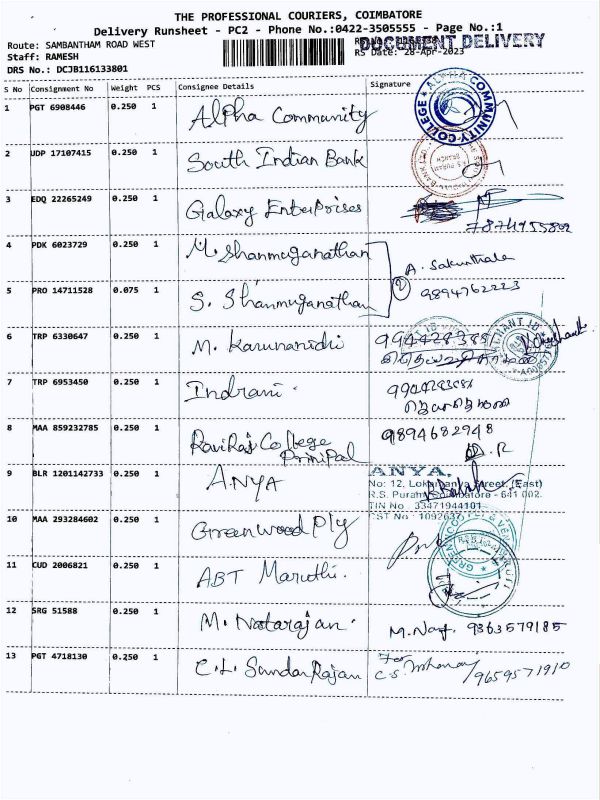 THE PROFESSIONAL COURIERS, COIMBATORE
Delivery Runsheet - PC2 - Phone No.:0422-3505555 - Page No.:1
Route: SAMBANTHAM ROAD WEST
DOCUMENT DELIVERY
Staff: RAMESH
RS Date: 28-Apr-2023
DRS No.: DCJB116133801
S No Consignment No Weight PCS Consignee Details Signature
1 PGT 6908446 0.250 1 Alpha Community
ALPHA COMMUNITY COLLEGE
2 UDP 17107415 0.250 1 South Indian Bank
3 EDQ 22265249 0.250 1 Galaxy Enterprises
4 PDK 6023729 0.250 1 M. Shanmuganathan
A. Sakunthala
5 PRO 14711528 0.075 1 S. Shanmuganathan
2 9894762223
6 TRP 6330647 0.250 1 M. Karunanidhi
7 TRP 6953450 0.250 1 Indrani.
8 MAA 859232785 0.250 1 RaviRaj College Prinipal 9894682948
9 BLR 1201142733 0.250 1 ANYA
ANYA,
No: 12, Street, (East)
R.S. Puram, Coimbatore - 641 002.
TIN No : 33471944101
CST No : 1092637
10 MAA 293284602 0.250 1 Greenwood Ply
11 CUD 2006821 0.250 1 ABT Maruthi.
12 SRG 51588 0.250 1 M. Natarajan. 9363579185
13 PGT 4718130 0.250 1 C.L. SundarRajan For C.S. 9659571910